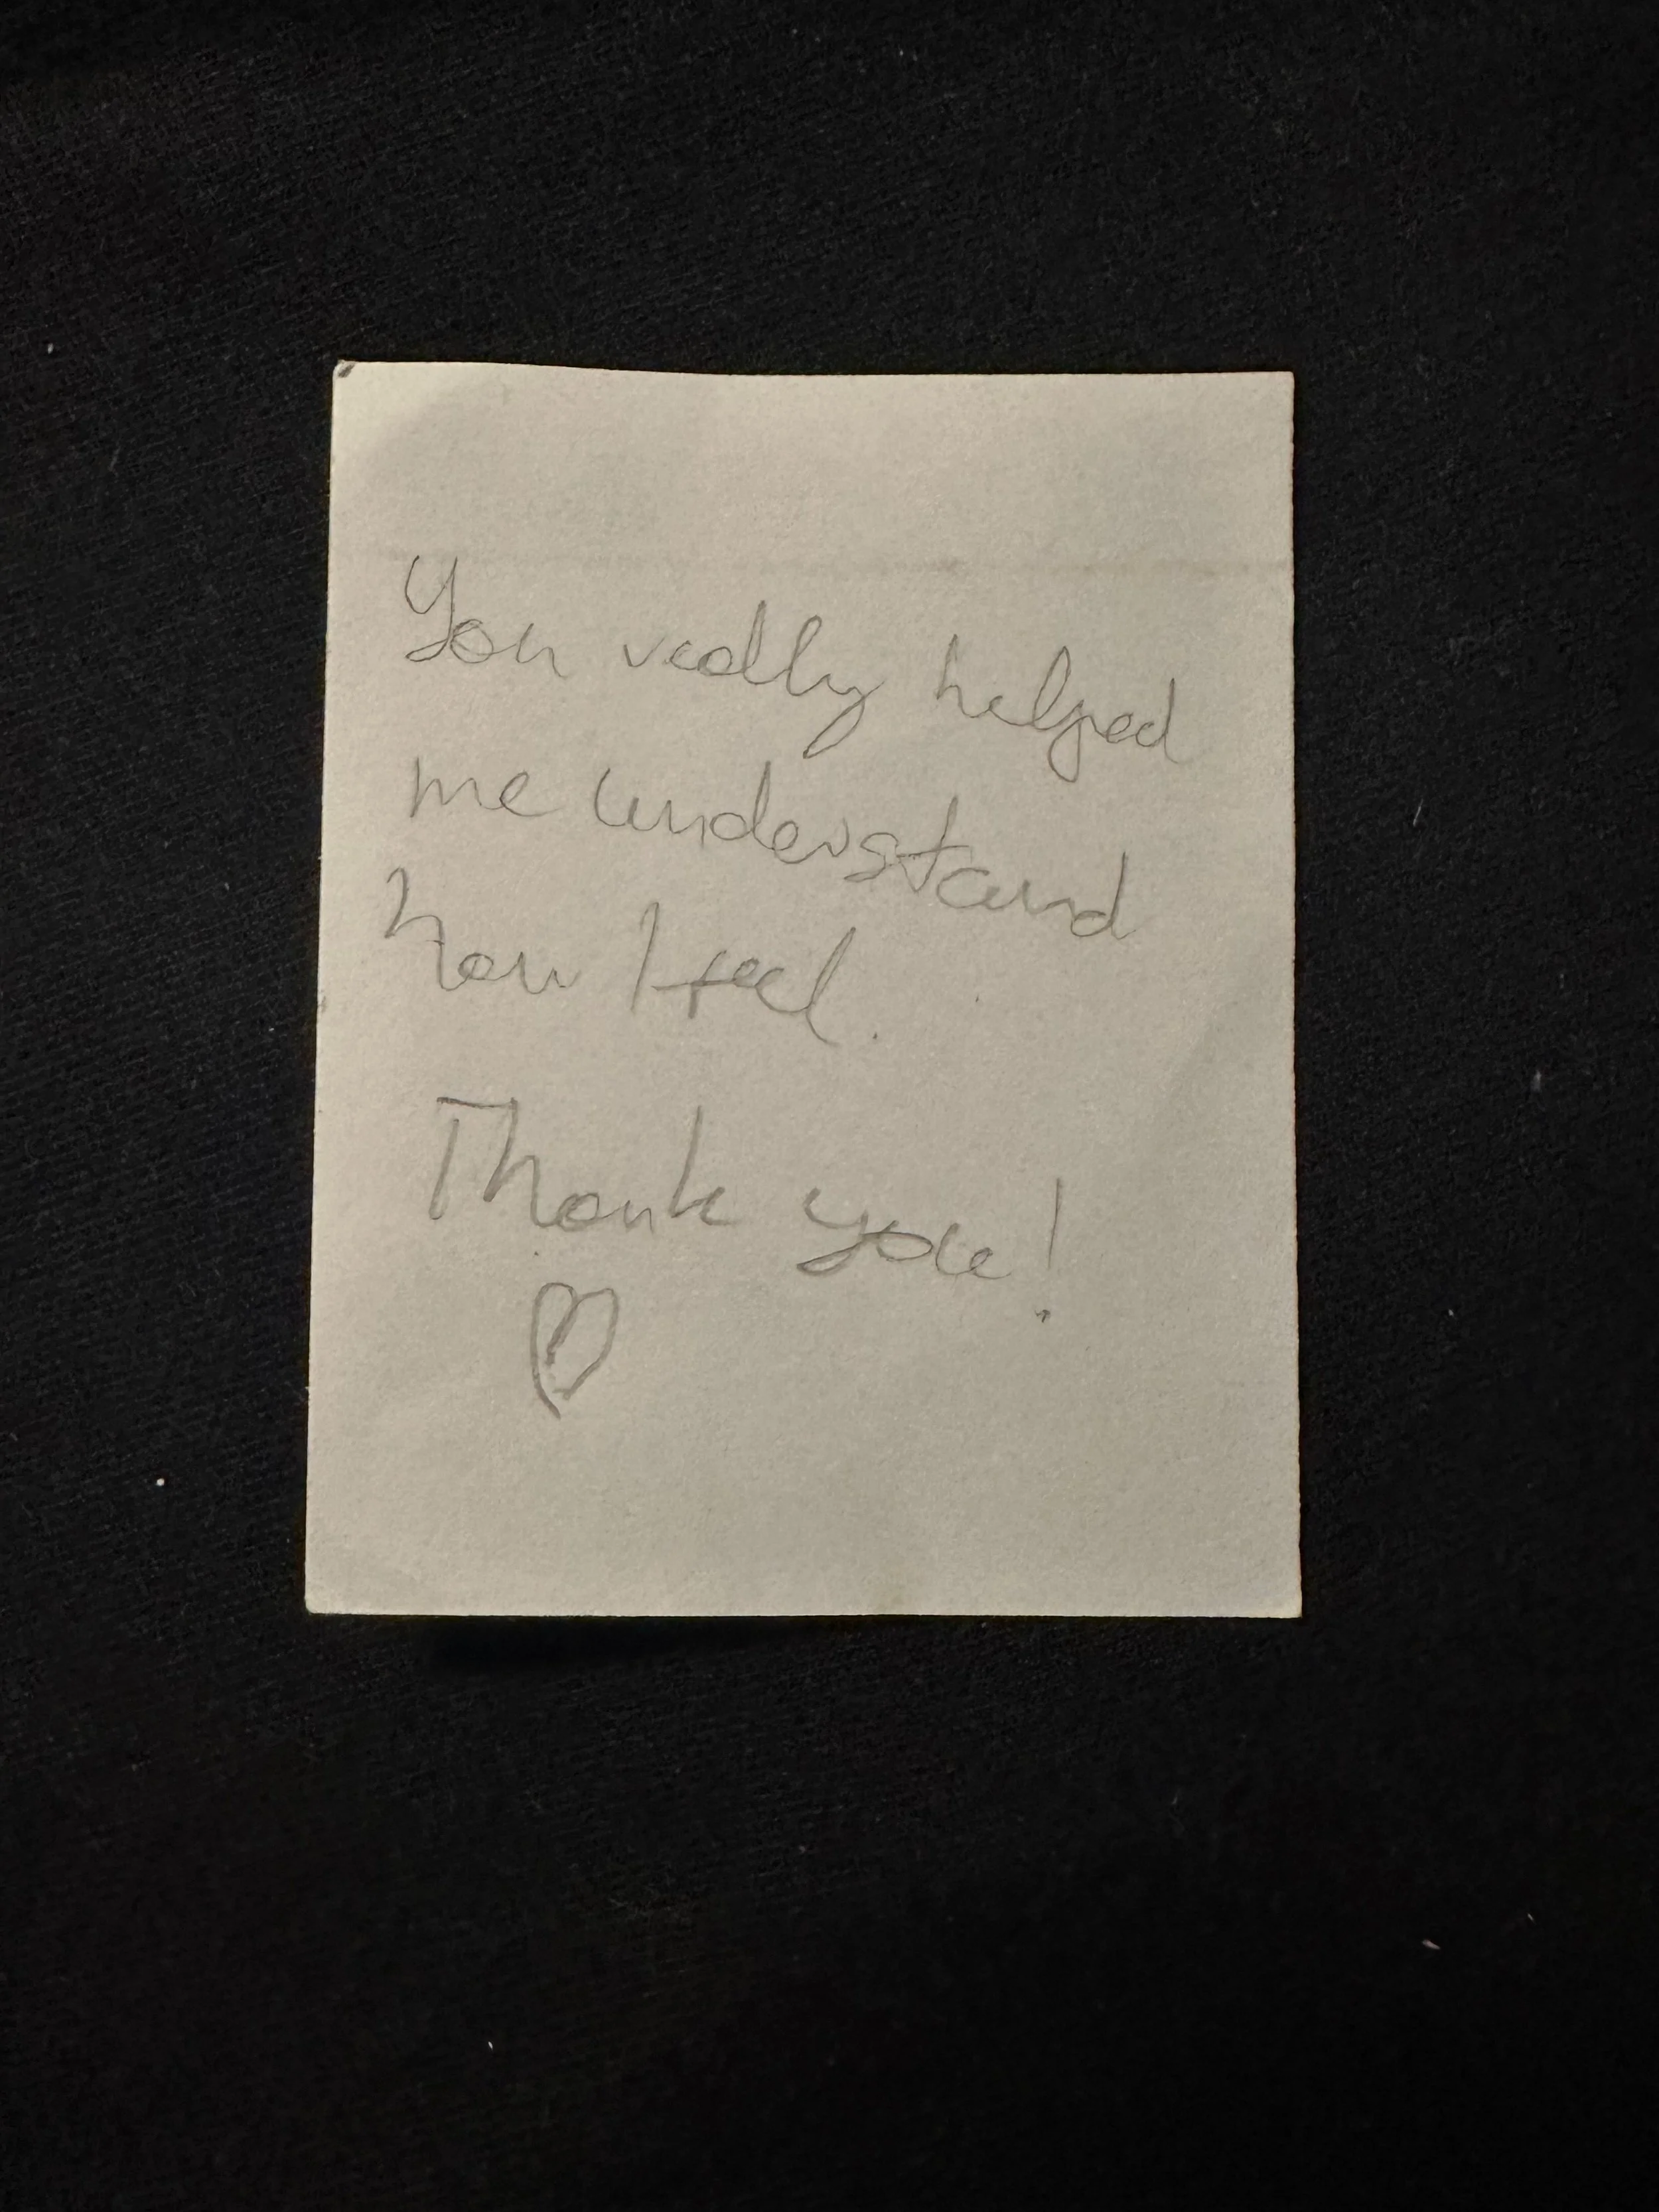 You really helped
me understand
how I feel.
Thank you!